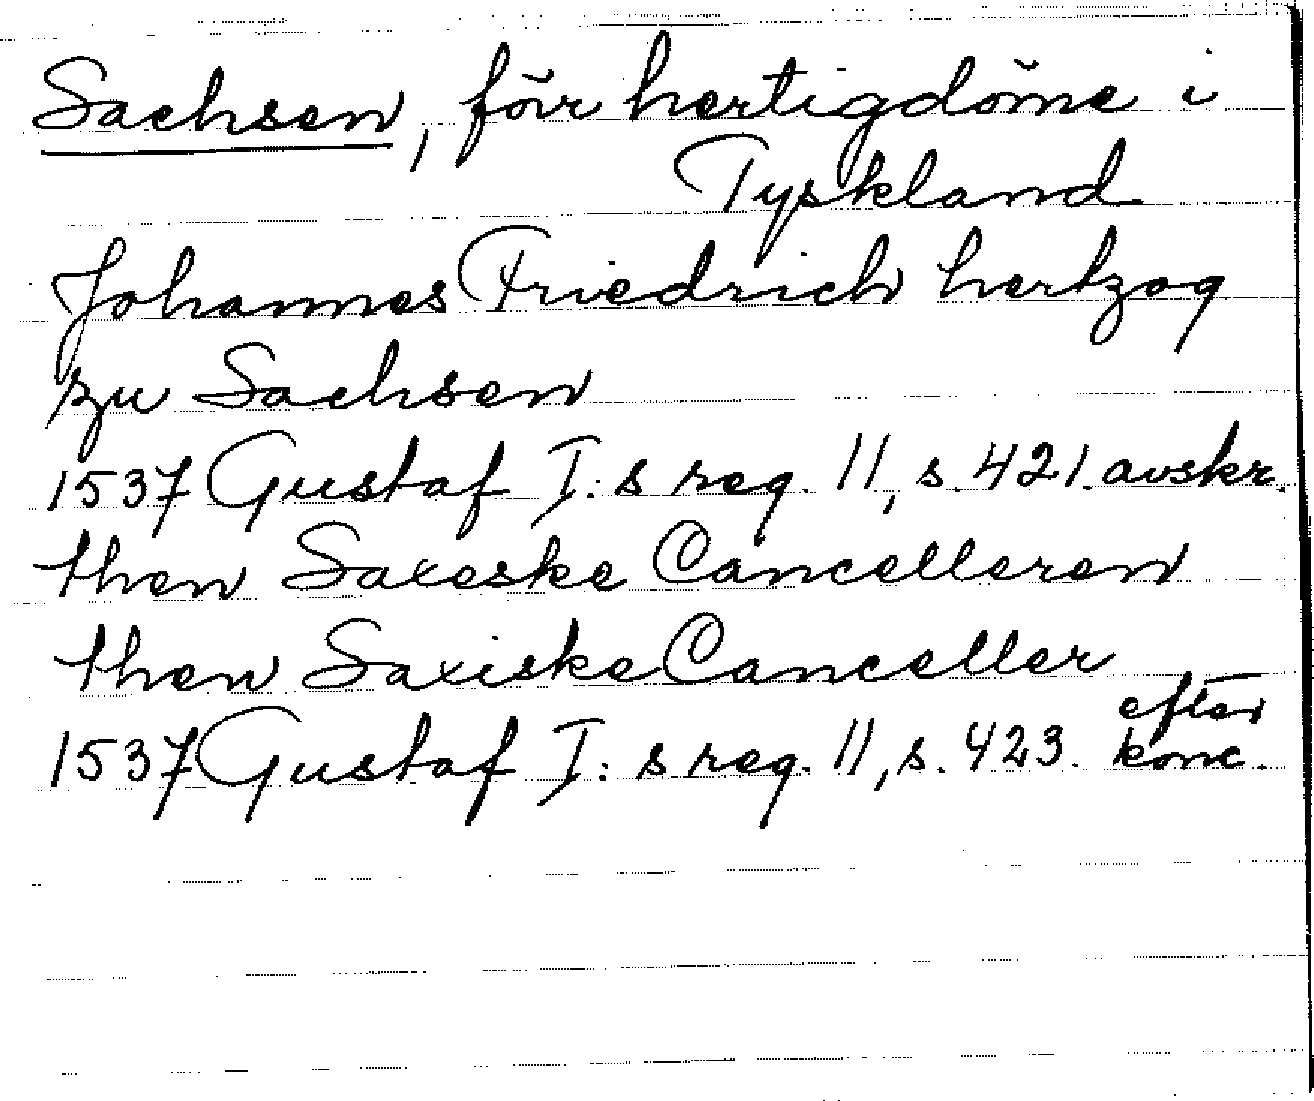 Sachsen, förr hertigdöme i
Tyskland
Johannes Friedrich hertzog
zu Sachsen
1537 Gustaf I:s reg. 11, s. 421. avskr.
then Saxeske Cancelleren
then Saxiske Canceller
1537 Gustaf I:s reg. 11, s. 423. efter konc.